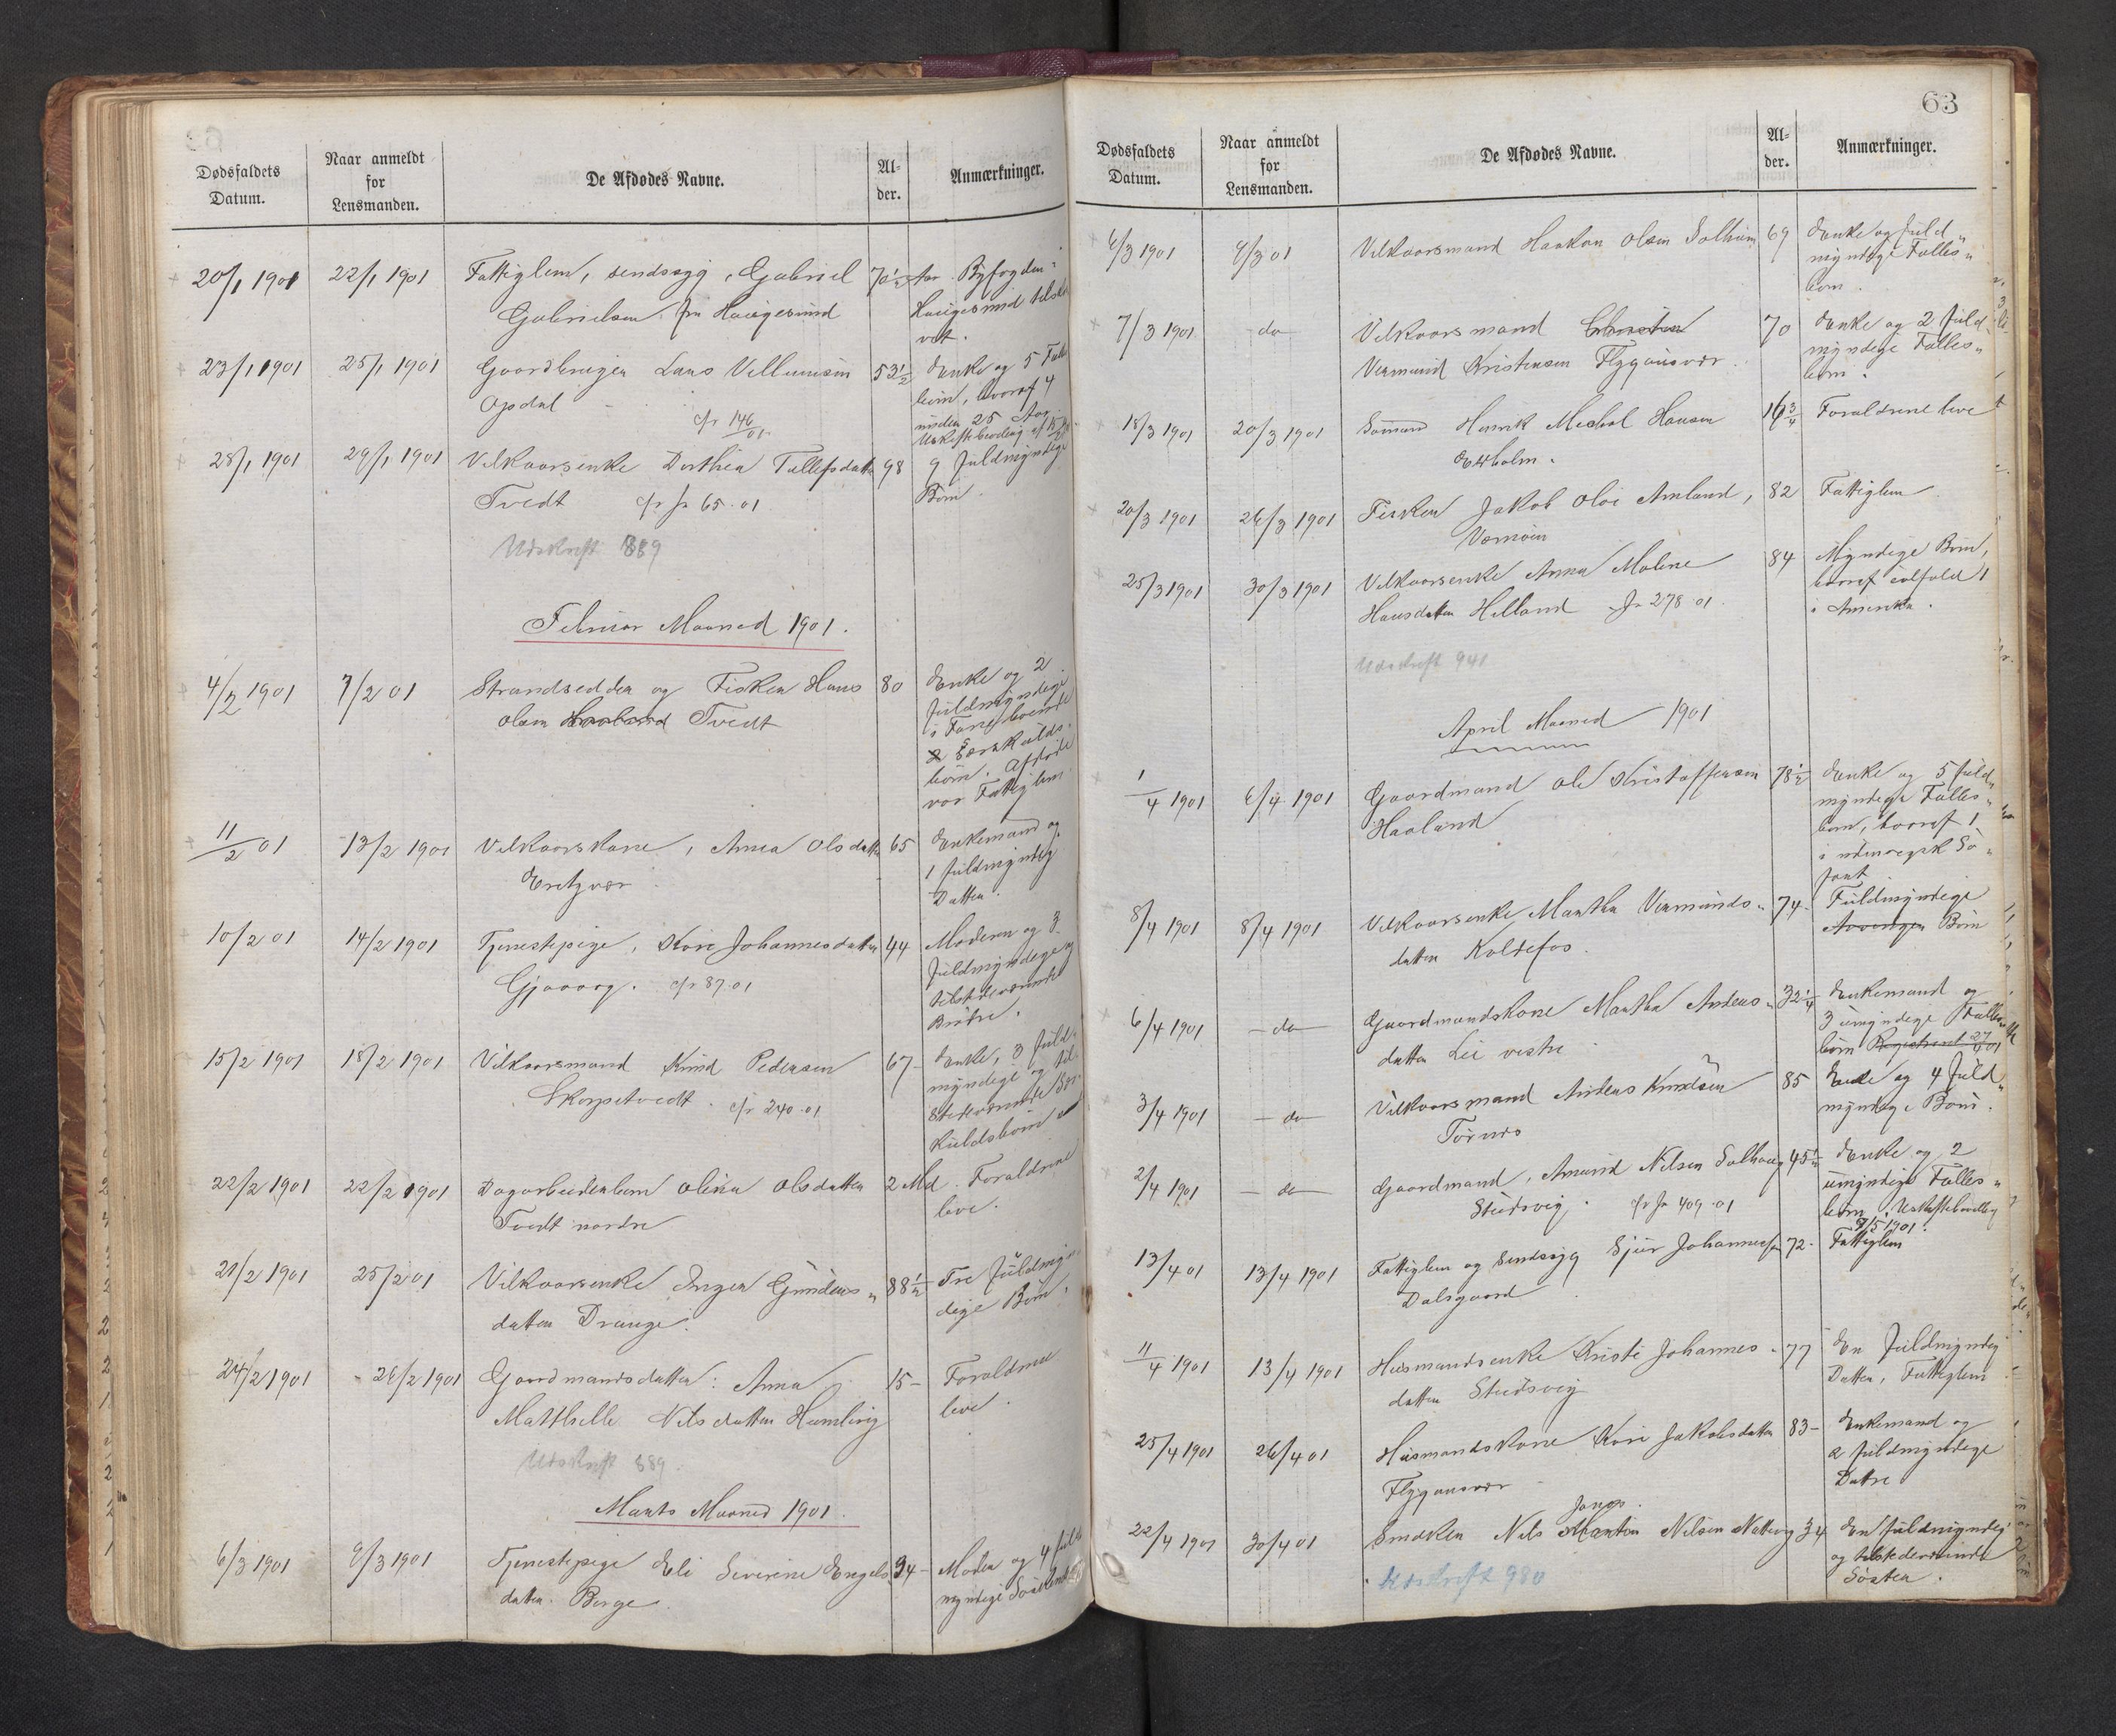 Dødsfaldets Datum.
Naar anmeldt for Lensmanden.
De Afdødes Navne.
Al-der.
Anmærkninger.
20/1 1901 22/1 1901 Fattiglem, sindssyg, Gabriel 70 1/2 Byfogden
Gabrielsen fra Haugesund Haugesund
23/1 1901 25/1 1901 Gaardbruger Lars Villumsen 53 1/2 Enke og 5
Opdal børn, hvoraf 4
cfr 146/01 under 25 Aar
28/1 1901 29/1 1901 Vilkaarsenke Dorthea Tollefsdatter 98 9 fuldmyndige
Tvedt cfr Jr 65-01 Børn.
Udskrift 889
Februar Maaned 1901.
4/2 1901 7/2 01 Strandsidder og Fisker Hans 80 Enke og 2
Olsen Haaland Tvedt fuldmyndige
2 Særskulds-
børn. Afdøde
var Fattiglem
11/2 01 13/2 1901 Vilkaarskone, Anna Olsdatter 65 Enkemand og
Eretzvær 1 fuldmyndig
Datter.
10/2 01 14/2 1901 Tjenestepige, Kari Johannesdatter 44 Moderen og 3
cfr 87-01 fuldmyndige og
tilstedeværende
Brødre.
15/2 1901 18/2 1901 Vilkaarsmand Knud Pedersen 67 Enke, 3 fuld-
cfr 240-01 myndige og til-
stedeværende Sær-
kuldsbørn
22/2 1901 22/2 1901 Dagarbeiderbarn Olina Olsdatter 2 Md. Forældrene
Tvedt nordre leve.
21/2 1901 25/2 01 Vilkaarsenke Inger Gunders- 88 1/2 Tre fuldmyn-
datter Drange. dige Børn.
24/2 1901 26/2 1901 Gaardmandsdatter: Anna 15 Forældrene
Mathille Nilsdatter Humlevig leve.
Udskrift 889.
Marts Maaned 1901.
6/3 1901 9/3 1901 Tjenestepige Eli Severine Engels- 34 Moder og 4 fuld-
datter Berge. myndige Søskende
63
Dødsfaldets Datum.
Naar anmeldt for Lensmanden.
De Afdødes Navne.
Al-der.
Anmærkninger.
4/3 1901 9/3 01 Vilkaarsmand Haakon Olsen Solheim 69 Enke og fuld-
myndige Fælles-
børn.
7/3 1901 do Vilkaarsmand 70 Enke og 2 fuld-
Vermund Kristensen Flygansvær. myndige Fælles-
børn.
18/3 1901 20/3 1901 Sømand Henrik Michal Hansen 16 3/4 Forældrene leve
Eldholm.
20/3 1901 26/3 1901 Fisker Jakob Olai Amland, 82 Fattiglem
25/3 1901 30/3 1901 Vilkaarsenke Anna Malene 84 Myndige Børn,
Hansdatter Helland Jr 278-01. hvoraf ialfald 1
i Amerika.
Udskrift 941
April Maaned 1901
1/4 1901 6/4 1901 Gaardmand Ole Kristoffersen 78 1/2 Enke og 5 fuld-
Haaland myndige Fælles-
børn, hvoraf 1
i udenrigsk Sø-
fart
8/4 1901 8/4 1901 Vilkaarsenke Martha Vermunds- 74 Fuldmyndige
datter Koldefos. Arvinger Børn
6/4 1901 do Gaardmandskone Martha Anders- 32 1/4 Enkemand og
datter Lie vestre 3 umyndige Fælles-
børn
3/4 1901 do Vilkaarsmand Anders Knudsen 85 Enke og 4 fuld-
Tornes myndige Børn.
2/4 1901 do Gaardmand, Amund Nilsen Solhaug 45 1/2 Enke og 2
Studsvig. cfr Jr 409-01 umyndige Fælles-
børn. Uskiftebevilling
9/5 1901.
13/4 01 13/4 1901 Fattiglem og Sindssyg Sjur Johannesen 72 Fattiglem
Dalsgaard
11/4 1901 13/4 1901 Husmandsenke Kristi Johannes- 77 En fuldmyndig
datter Studsvig Datter, Fattiglem
25/4 1901 26/4 01 Husmandskone Kari Jakobsdatter 83 Enkemand og
Flygansvær 2 fuldmyndige
Døtre
22/4 1901 30/4 01 Smeken Nils Nilsen 34 En fuldmyndig
Udskrift 980 og tilstedeværende
Søster.